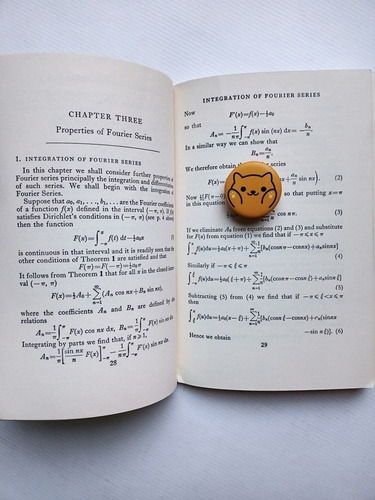 CHAPTER THREE
Properties of Fourier Series
1. INTEGRATION OF FOURIER SERIES
In this chapter we shall consider further properties of
Fourier series principally the integration and differentiation
of such series. We shall begin with the integration of
Fourier series.
Suppose that a₀, a₁, . . ., b₁, . . . are the Fourier coefficients
of a function f(x) defined in the interval (−π, π). If f(x)
satisfies Dirichlet's conditions in (−π, π) (see p. 4
then the function
F(x)=∫₋π^x f(t) dt−½a₀x
is continuous in that interval and it is readily seen that
other conditions of Theorem 1 are satisfied and that
F(π)=F(−π)=½a₀π.
It follows from Theorem 1 that for all x in the closed
val (−π, π)
F(x)=½A₀+∑ₙ₌₁^∞(Aₙ cos nx+Bₙ sin nx).
where the coefficients Aₙ and Bₙ are defined by the
relations
Aₙ=1/π ∫₋π^π F(x) cos nx dx, Bₙ=1/π ∫₋π^π F(x) sin nx dx.
Integrating by parts we find that, if n≥1,
Aₙ=1/π[sin nx/n F(x)]₋π^π−1/nπ ∫₋π^π F′(x) sin nx dx.
28
INTEGRATION OF FOURIER SERIES
Now F′(x)=f(x)−½a₀
so that
Aₙ=−1/nπ ∫₋π^π f(x) sin (nx) dx=−bₙ/n.
In a similar way we can show that
Bₙ=aₙ/n.
We therefore obtain the series
F(x)= nx+aₙ/n sin nx). (2)
Now so that putting x=π
in this equation
cos nπ. (3)
If we eliminate A₀ from equations (2) and (3) and substitute
for F(x) from equation (1) we find that if −π≤x≤π
∫₋π^x f(u)du=½a₀(x+π)+∑ₙ₌₁^∞1/n[bₙ(cos nπ−cos nx)+aₙsin nx]
(4)
Similarly if −π≤ξ≤π
∫₋π^ξ f(u)du=½a₀(ξ+π)+∑ₙ₌₁^∞1/n[bₙ(cos nπ−cos nξ)+aₙsin nξ].
(5)
Subtracting (5) from (4) we find that if −π≤ξ<x≤π
then
∫ξ^x f(u)du=½a₀(x−ξ)+∑ₙ₌₁^∞1/n[bₙ(cos nξ−cos nx)+aₙ(sin nx
−sin nξ)]. (6)
Hence we obtain
29